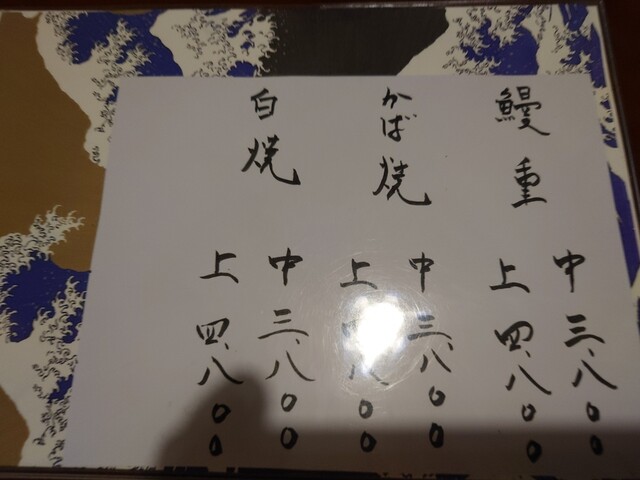 鰻重
中 三、八〇〇
上 四、八〇〇
かば焼
中 三、八〇〇
上 四、八〇〇
白焼
中 三、八〇〇
上 四、八〇〇